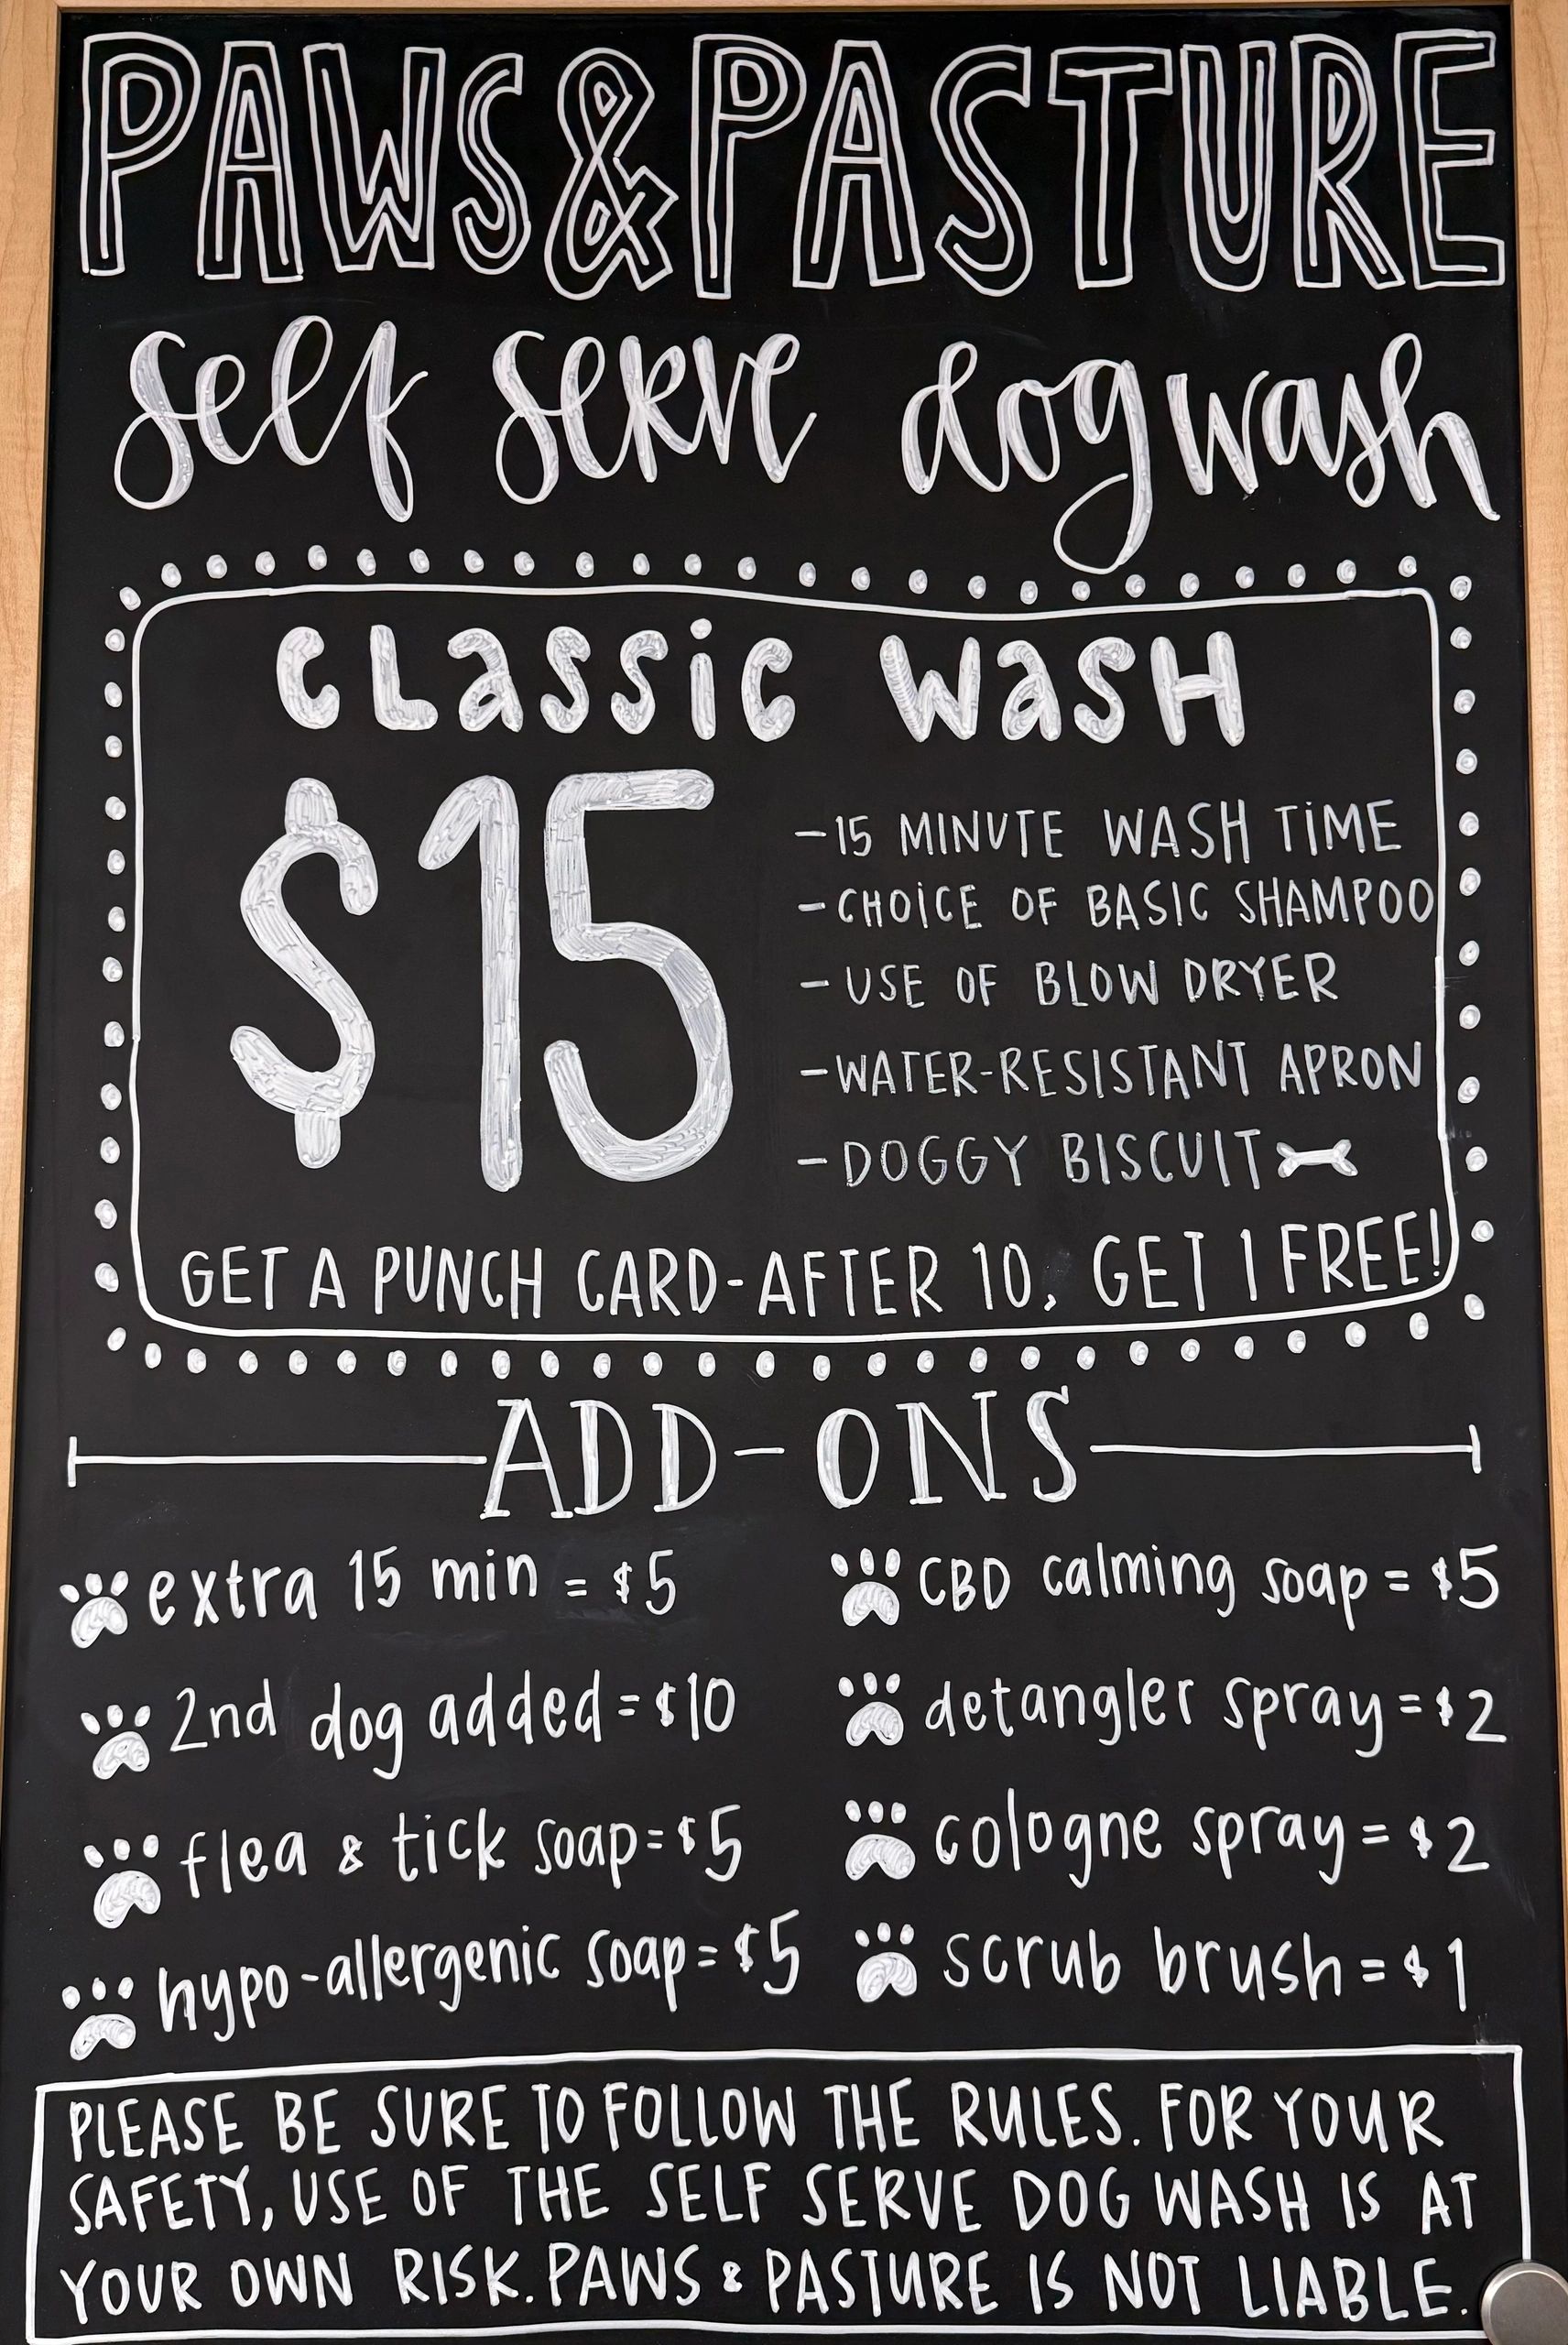 PAWS & PASTURE
self serve dog wash
CLaSSiC WaSH
$15
-15 MINUTE WASH TiME
-CHOiCE OF BASIC SHAMPOO
-USE OF BLOW DRYER
-WATER-RESISTANT APRON
-DOGGY BISCUIT
GET A PUNCH CARD-AFTER 10, GET 1 FREE!
ADD-ONS
extra 15 min = $5
2nd dog added = $10
flea & tick soap = $5
hypo-allergenic soap = $5
CBD calming soap = $5
detangler spray = $2
cologne spray = $2
scrub brush = $1
PLEASE BE SURE TO FOLLOW THE RULES. FOR YOUR
SAFETY, USE OF THE SELF SERVE DOG WASH IS AT
YOUR OWN RISK. PAWS & PASTURE IS NOT LIABLE.